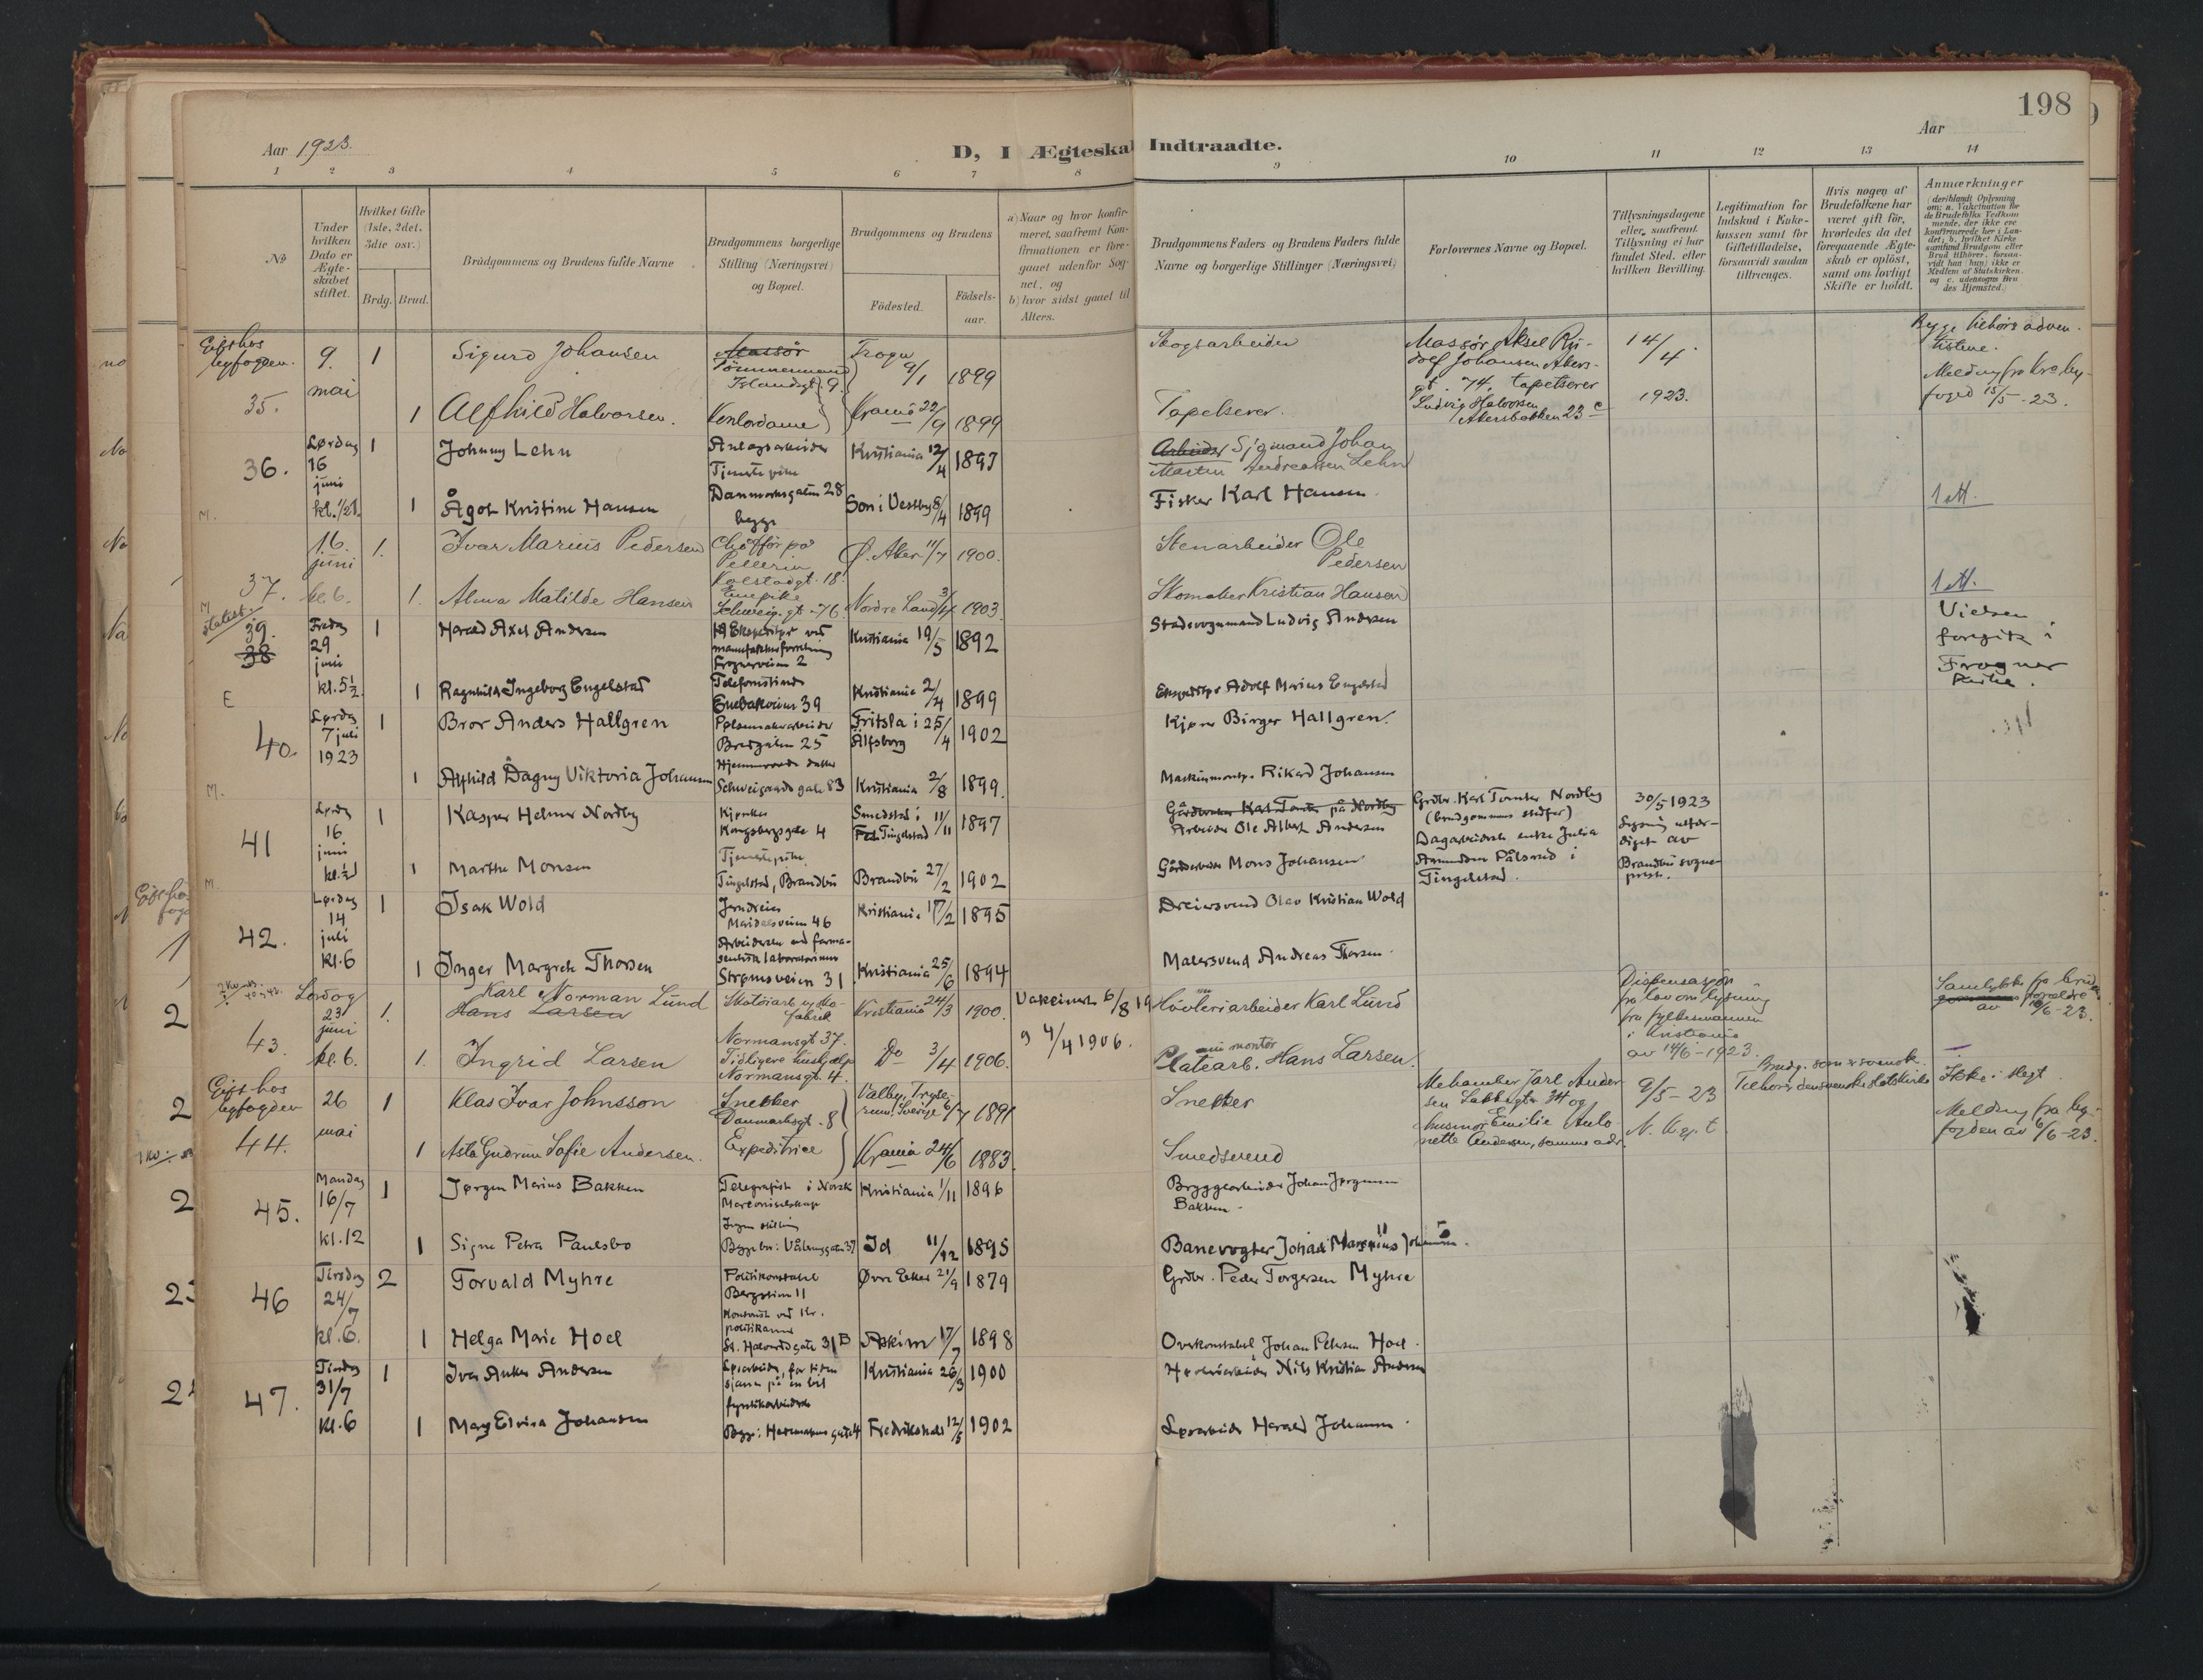 198
Aar 1923.
D, I Ægteska Indtraadte.
Aar
1 2 3 4 5 6 7 8 9 10 11 12 13 14
No
Under hvilken Dato er Ægteskabet stiftet.
Hvilket Gifte (1ste, 2det, 3die osv.)
Brdg. Brud.
Brudgommens og Brudens fulde Navne
Brudgommens borgerlige Stilling (Næringsvei) og Bopæl.
Brudgommens og Brudens
Födested.
Födsels-aar.
a) Naar og hvor konfir-
meret, saafremt Kon-
firmationen er fore-
gaaet udenfor Sog-
net, og
b) hvor sidst gaaet til
Alters.
Brudgommens Faders og Brudens Faders fulde
Navne og borgerlige Stillinger (Næringsvei)
Forlovernes Navne og Bopæl.
Tillysningsdagene
eller, saafremt
Tillysning ei har
fundet Sted, efter
hvilken Bevilling.
Legitimation for
Indskud i Enke-
kassen samt for
Giftetilladelse,
forsaavidt saadan
tiltrænges.
Hvis nogen af
Brudefolkene har
været gift før,
hvorledes da det
foregaaende Ægte-
skab er oplöst,
samt om lovligt
Skifte er holdt.
Anmærkninger
Gift hos
byfogden.
35.
9.
mai
1 Sigurd Johansen
Massør
Tömmermand
Islandsgt. 9.
Trogn 9/1 1899
Skogsarbeider
Massør Aksel Ru-
dolf Johansen Akers-
gt. 74, tapetserer
Ludvig Halvorsen
Akersbakken 23 c
14/4
1923.
Begge tilhörer adven-
tistene.
Melding fra Kra by-
foged 15/5 - 23.
1 Alfhild Halvorsen.
Kontordame
Krania 22/9 1899
Tapetserer.
36.
Lørdag
16
juni
kl. 1/2 1.
1 Johnny Lehn
Anlagsarbeider
Kristiania 12/4 1897
Arbeider Sigmund Johan
Martin Andreassen Lehn
1 Ågot Kristine Hansen
Tjenestepike
Danmarksgaten 28
begge
Son i Vestby 8/4 1899
Fisker Karl Hansen
1 M.
M.
37.
16.
juni
kl. 6.
1. Ivar Marius Pedersen
Chaffør på
Pellerin
Kolstadgt. 18.
Ö. Aker 11/7 1900.
Stenarbeider Ole
Pedersen
1. Alma Matilde Hansen
Enepike
Schweig. gt. 76
Nordre Land 3/4 1903
Skomaker Kristian Hansen
1 M.
M
39.
38
Fredag
29
juni
kl. 5 1/2.
1 Harald Axel Andersen
manufakturforretning
Frognerveien 2
Kristiania 19/5 1892
Stadsvognmand Ludvig Andersen
Vielsen
foregik i
Frogner
kirke.
E
1 Ragnhild Ingeborg Engelstad
Telefonistinde
Enebakveien 39
Kristiania 2/4 1899
Ekspeditør Adolf Marius Engelstad
40.
Lørdag
7 juli
1923
1 Bror Anders Hallgren
Pølsemakerarbeider
Bredgaten 25
Fritsla i Älfsborg 25/4 1902
Kjører Birger Hallgren.
1 Alfhild Dagny Viktoria Johansen
Hjemmeværende datter
Schweigaards gate 83
Kristiania 2/8 1899.
Maskinmontør Rikard Johansen
M.
41
Lørdag
16
juni
1 Kasper Helmer Nordby
Kjusker
Kongsbergsgate 4
Smedstad i Tingelstad 11/11 1897
Gårdbruker Karl Tomter på Nordby
Arbeider Ole Albert Andersen
Grdbr. Karl Tomter Nordby
(brudgommens stedfar)
Dagarbeiderske enke Julia
Amundsen Pålsrud i
Tingelstad.
30/5 1923
Lysning utfær-
diget av
Brandbu sogne-
prest.
1 Marthe Monsen
Tjenestepike
Tingelstad, Brandbu
Brandbu 27/2 1902
Gårdarbeider Mons Johansen
M.
42.
Lørdag
14
juli
kl. 6
1 Isak Wold
Jerndreier
Maridalsveien 46
Kristiania 17/2 1895
Dreiersvend Olav Kristian Wold
1 Inger Margrete Thorsen
Arbeiderske ved farma-
ceutisk laboratorium
Strømsveien 31
Kristiania 25/6 1894
Malersvend Andreas Thorsen
43.
Lördag
23
juni
kl. 6.
1. Karl Norman Lund
Hans Larsen
fabrik
Normansgt 37.
Kristiania 24/3 1900.
Høvleriarbeider Karl Lund
Dispensasjon
fra lov om lysning
fra fylkesmannen
i Kristiania
av 14/6 - 1923.
Samtykke fra brudens
forældre
av 19/6 - 23.
1. Ingrid Larsen
Tidligere hushjælp
Normansgt. 4.
Do 3/4 1906.
4/4 1906.
nu montør
Platearb. Hans Larsen.
Gift hos
byfogden
44.
26
mai
1 Klas Ivar Johnsson
Snekker
Danmarksgt. 8
Valby, Tryse-
rum, Sverige 6/7 1891
Snekker
Mekaniker Jarl Ander-
sen Lakkegt. 34 og
husmor Emilie Anto-
nette Andersen, samme adr.
9/5 - 23
N. Kgt
Brudg. som er svensk.
Tilhörer den svenske statskirke
Ikke i slegt.
Melding fra by-
fogden av 6/6 - 23.
1 Asta Gudrun Sofie Andersen.
Expeditrice
Krania 24/6 1883.
Smedsvend
45.
Mandag
16/7
kl. 12
1 Jørgen Marius Bakken
Telegrafist i Norsk
Marconiselskap
Kristiania 1/11 1896
Bryggearbeider Johan Jørgensen
Bakken
1 Signe Petra Paulsbo
Ingen stilling
Begge bor: Vålerenggaten 37
Id 11/12 1895
Banevogter Johan Marenius Johansen.
46
Tirsdag
24/7
kl. 6.
2 Torvald Myhre
Politikonstabel
Bergslien 11
Øvre Eiker 21/9 1879
Grdbr. Peder Torgersen Myhre
1 Helga Marie Hoel
Kontorist ved Kr.
politikammer
St. Halvards gate 31 B
Askim 17/7 1898
Overkonstabel Johan Petersen Hoel.
47.
Tirsdag
31/7
kl. 6
1 Ivar Anker Andersen
Kristiania 26/3 1900
Nils Kristian Andersen
1 Mary Elvira Johansen
fyrstikarbeiderske
Fredrikstad 12/5 1902
Harald Johansen